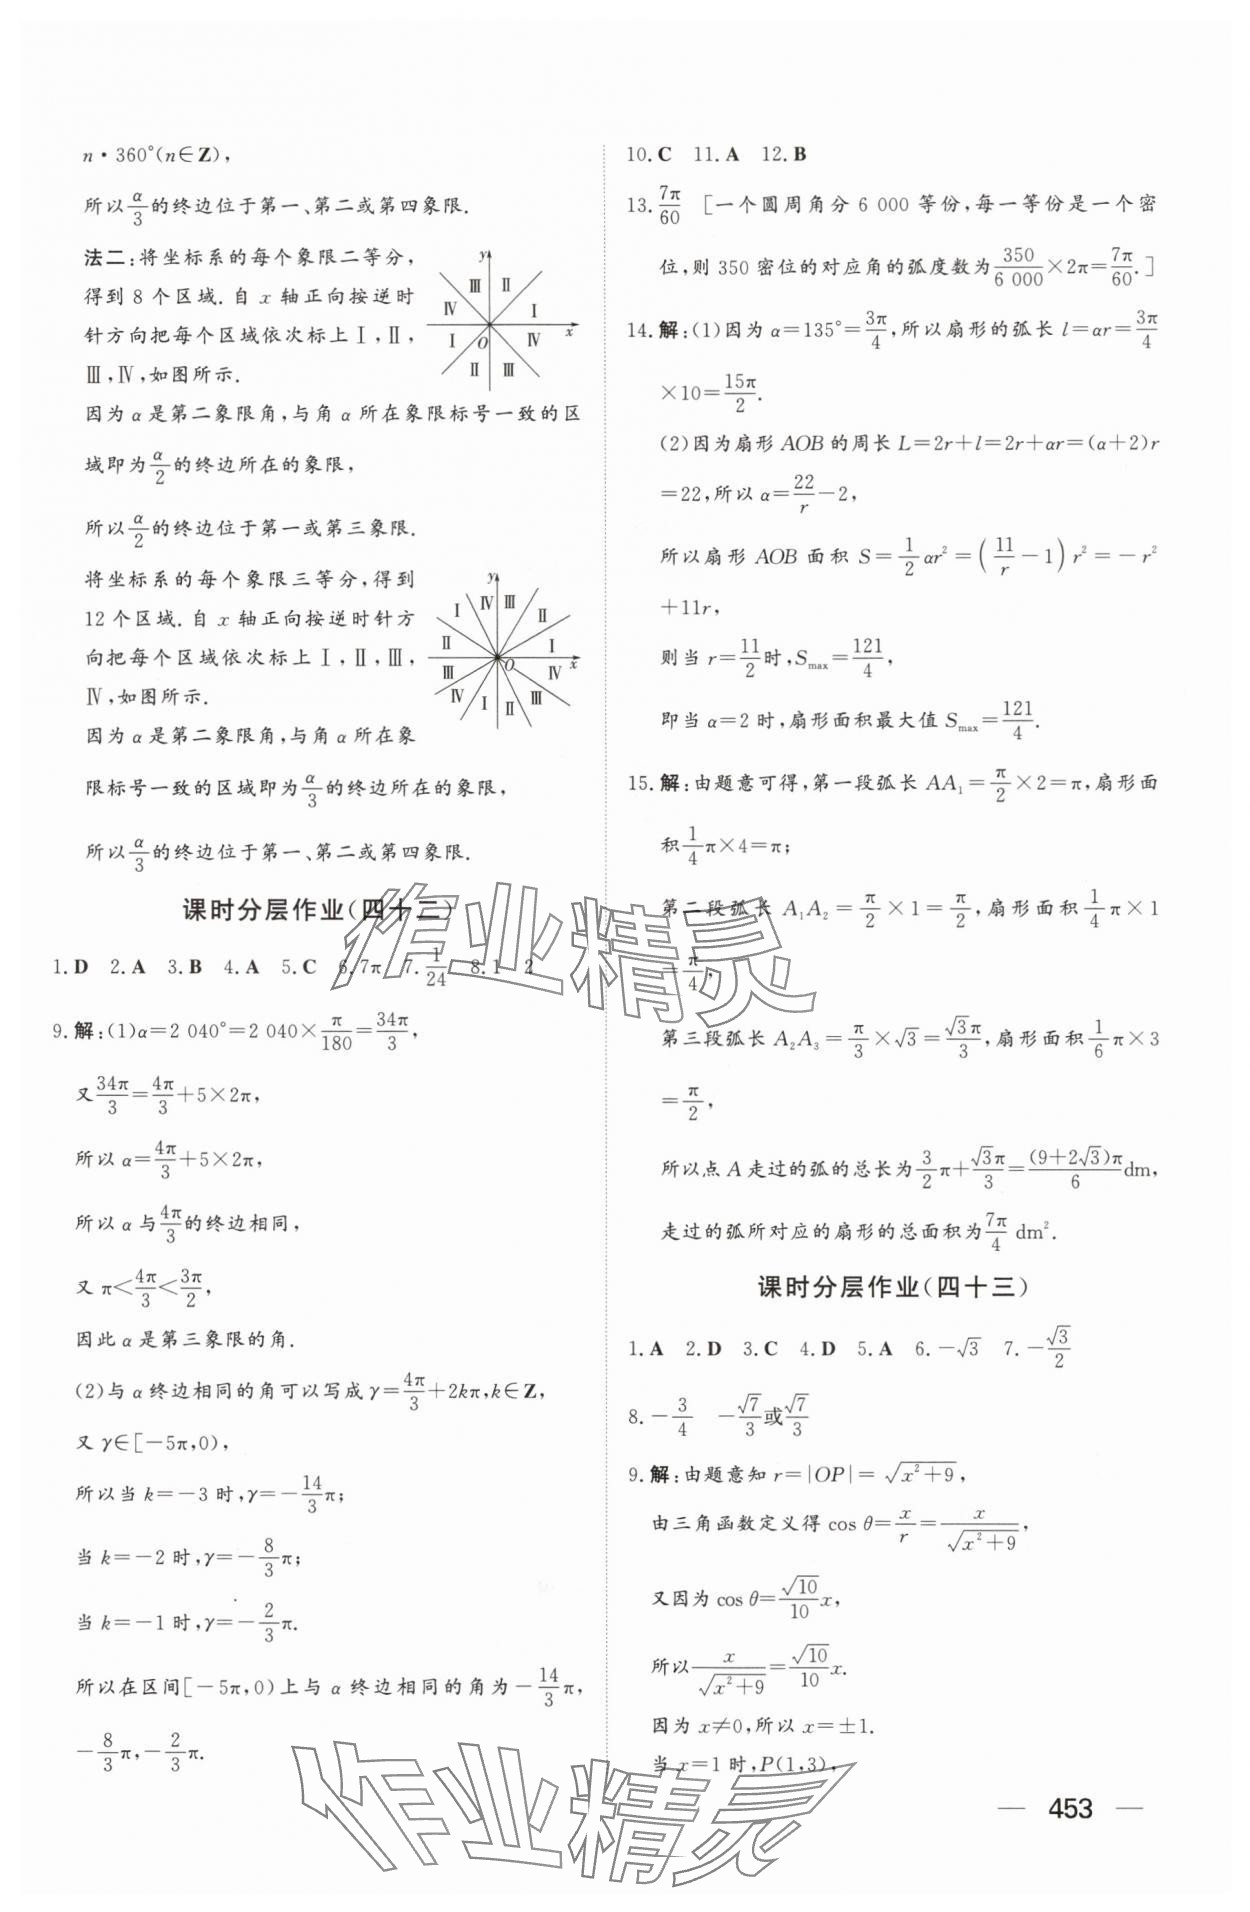 n·360°(n∈Z),
所以α/3的终边位于第一、第二或第四象限.
法二:将坐标系的每个象限二等分,
得到 8 个区域.自 x 轴正向按逆时
针方向把每个区域依次标上Ⅰ,Ⅱ,
Ⅲ,Ⅳ,如图所示.
y Ⅲ Ⅱ Ⅳ Ⅰ Ⅰ O Ⅳ x Ⅱ Ⅲ
因为 α 是第二象限角,与角 α 所在象限标号一致的区
域即为α/2的终边所在的象限,
所以α/2的终边位于第一或第三象限.
将坐标系的每个象限三等分,得到
12 个区域.自 x 轴正向按逆时针方
向把每个区域依次标上Ⅰ,Ⅱ,Ⅲ,
Ⅳ,如图所示.
y Ⅰ Ⅳ Ⅲ Ⅱ Ⅱ Ⅰ O x Ⅲ Ⅳ Ⅳ Ⅰ Ⅱ Ⅲ
因为 α 是第二象限角,与角 α 所在象
限标号一致的区域即为α/3的终边所在的象限,
所以α/3的终边位于第一、第二或第四象限.
课时分层作业(四十二)
1.D 2.A 3.B 4.A 5.C 6.7π 7.1/24 8.1 2
9.解:(1)α=2 040°=2 040×π/180=34π/3,
又34π/3=4π/3+5×2π,
所以 α=4π/3+5×2π,
所以 α 与4π/3的终边相同,
又 π<4π/3<3π/2,
因此 α 是第三象限的角.
(2)与 α 终边相同的角可以写成 γ=4π/3+2kπ,k∈Z,
又 γ∈[-5π,0),
所以当 k=-3 时,γ=-14/3π;
当 k=-2 时,γ=-8/3π;
当 k=-1 时,γ=-2/3π.
所以在区间[-5π,0)上与 α 终边相同的角为-14/3π,
-8/3π,-2/3π.
10.C 11.A 12.B
13.7π/60 [一个圆周角分 6 000 等份,每一等份是一个密
位,则 350 密位的对应角的弧度数为350/6 000×2π=7π/60.]
14.解:(1)因为 α=135°=3π/4,所以扇形的弧长 l=αr=3π/4
×10=15π/2.
(2)因为扇形 AOB 的周长 L=2r+l=2r+αr=(α+2)r
=22,所以 α=22/r-2,
所以扇形 AOB 面积 S=1/2αr²=(11/r-1)r²=-r²
+11r,
则当 r=11/2时,Smax=121/4,
即当 α=2 时,扇形面积最大值 Smax=121/4.
15.解:由题意可得,第一段弧长 AA₁=π/2×2=π,扇形面
积1/4π×4=π;
第二段弧长 A₁A₂=π/2×1=π/2,扇形面积1/4π×1
=π/4,
第三段弧长 A₂A₃=π/3×√3=√3π/3,扇形面积1/6π×3
=π/2,
所以点 A 走过的弧的总长为3/2π+√3π/3=(9+2√3)π/6dm,
走过的弧所对应的扇形的总面积为7π/4 dm².
课时分层作业(四十三)
1.A 2.D 3.C 4.D 5.A 6.-√3 7.-√3/2
8.-3/4 -√7/3或√7/3
9.解:由题意知 r=|OP|=√(x²+9),
由三角函数定义得 cos θ=x/r=x/√(x²+9),
又因为 cos θ=√10/10x,
所以x/√(x²+9)=√10/10x.
因为 x≠0,所以 x=±1.
当 x=1 时,P(1,3),
— 453 —
作业精灵
作业精灵